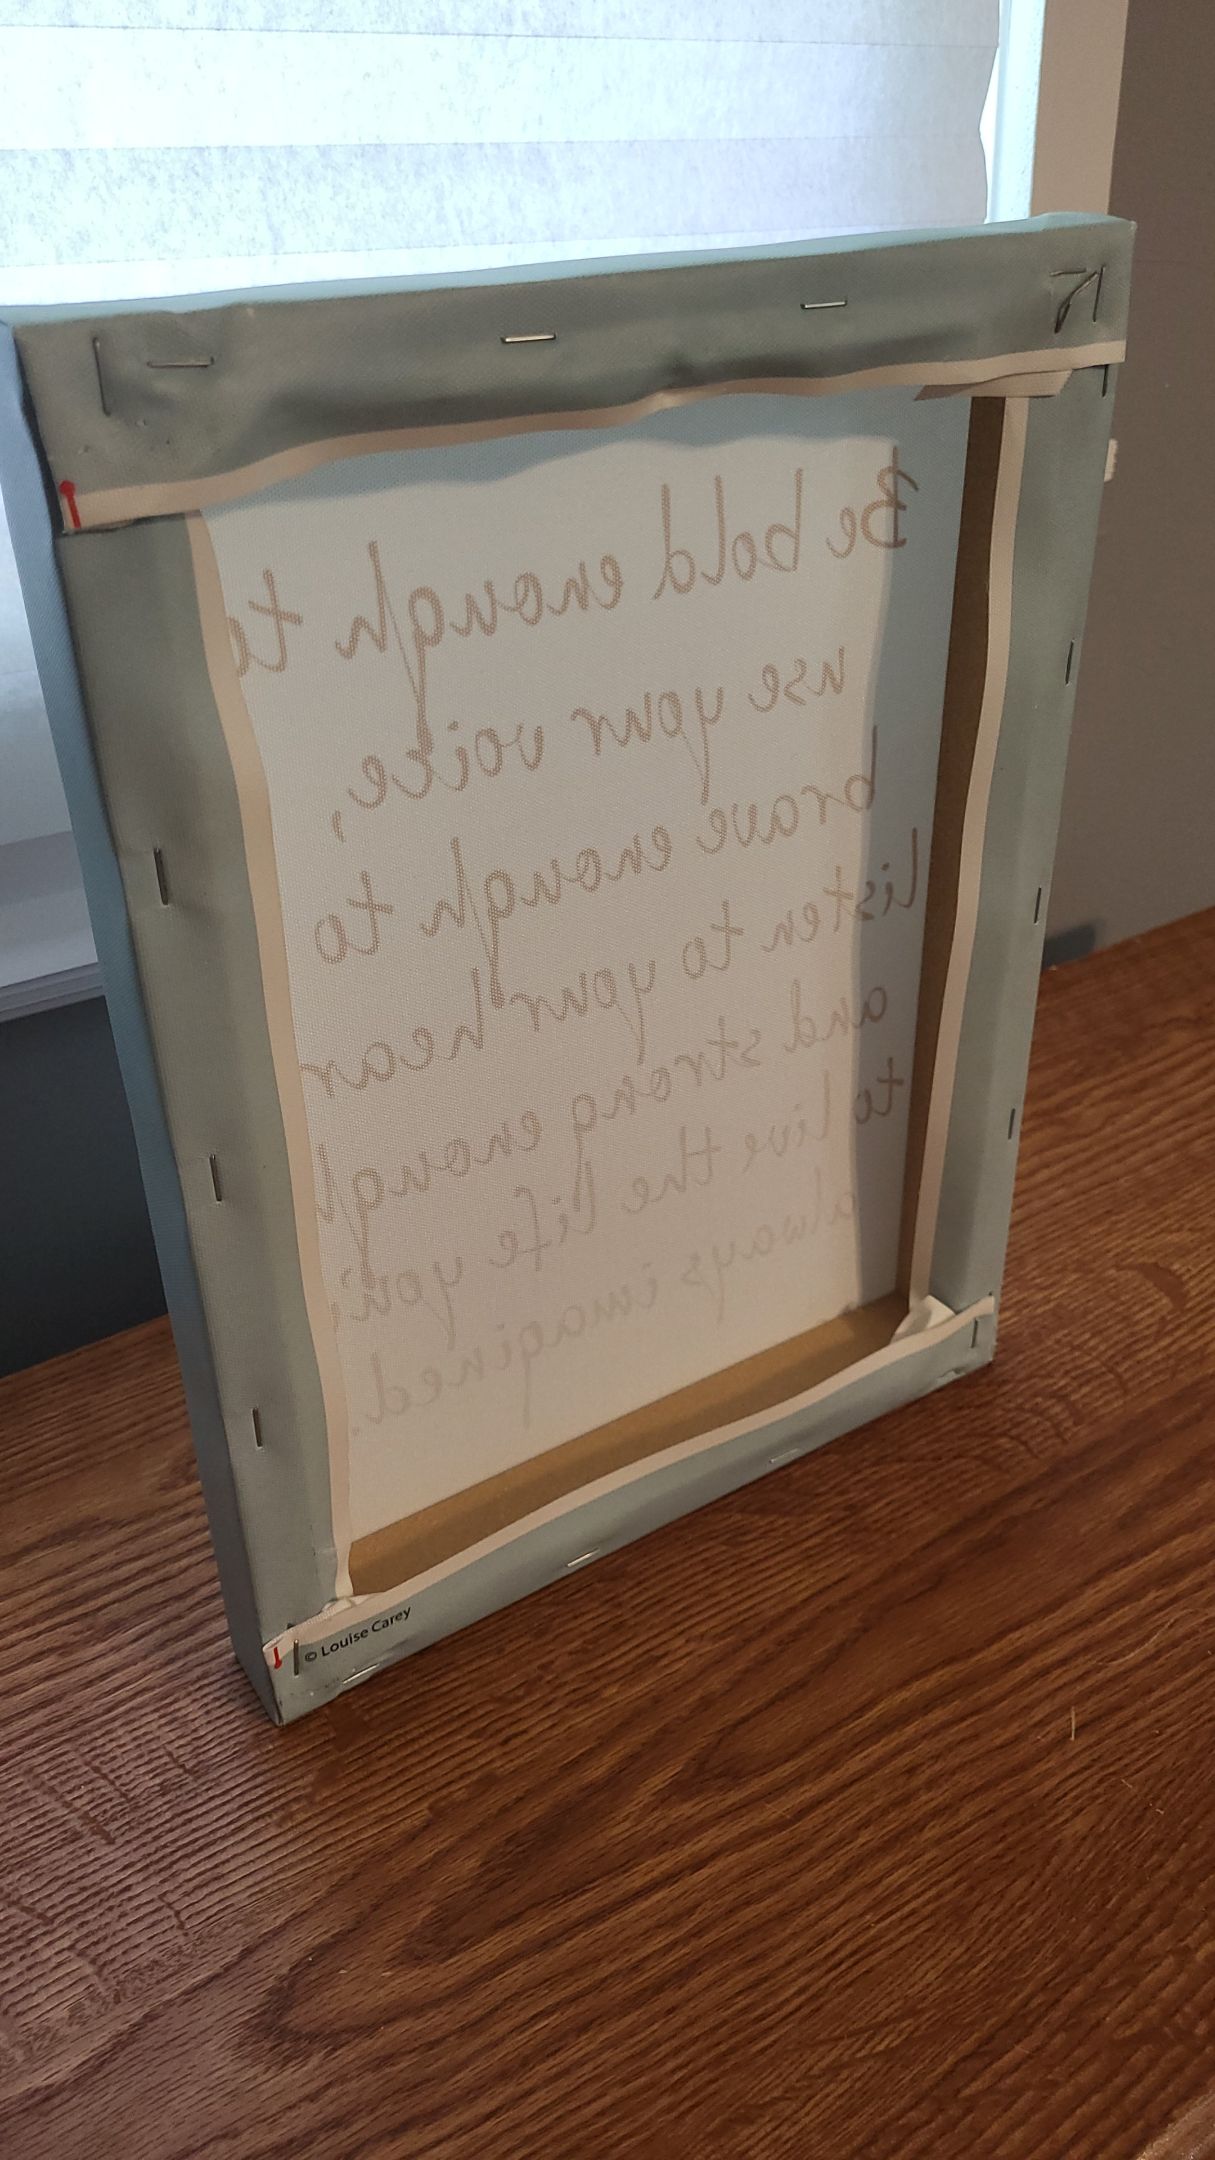 Be bold enough to
use your voice,
brave enough to
listen to your hear
and strong enough
to live the life you'
always imagined.
© Louise Carey